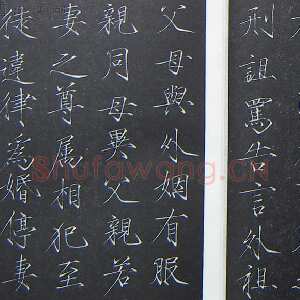 刑詛罵告言外祖
父母與外姻有服
親同母異父親若
妻之尊属相犯至
徒違律為婚停妻
Shufawang.cn